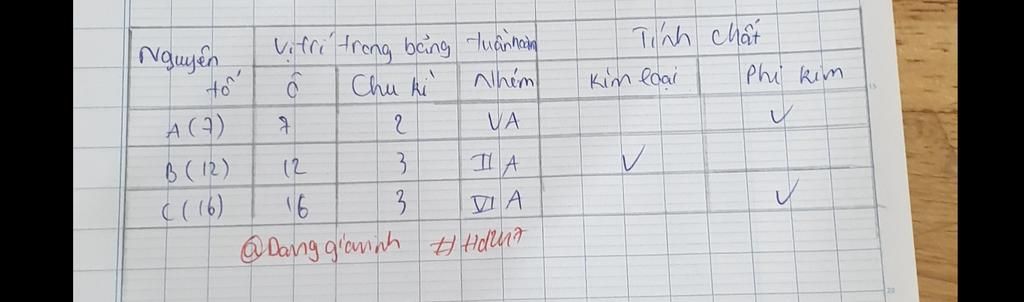 Nguyên tố Vị trí trong bảng tuần hoàn Tính chất
Ô Chu kì Nhóm Kim loại Phi kim
A (7) 7 2 VA ✓
B (12) 12 3 II A ✓
C (16) 16 3 VI A ✓
@Danggiaminh